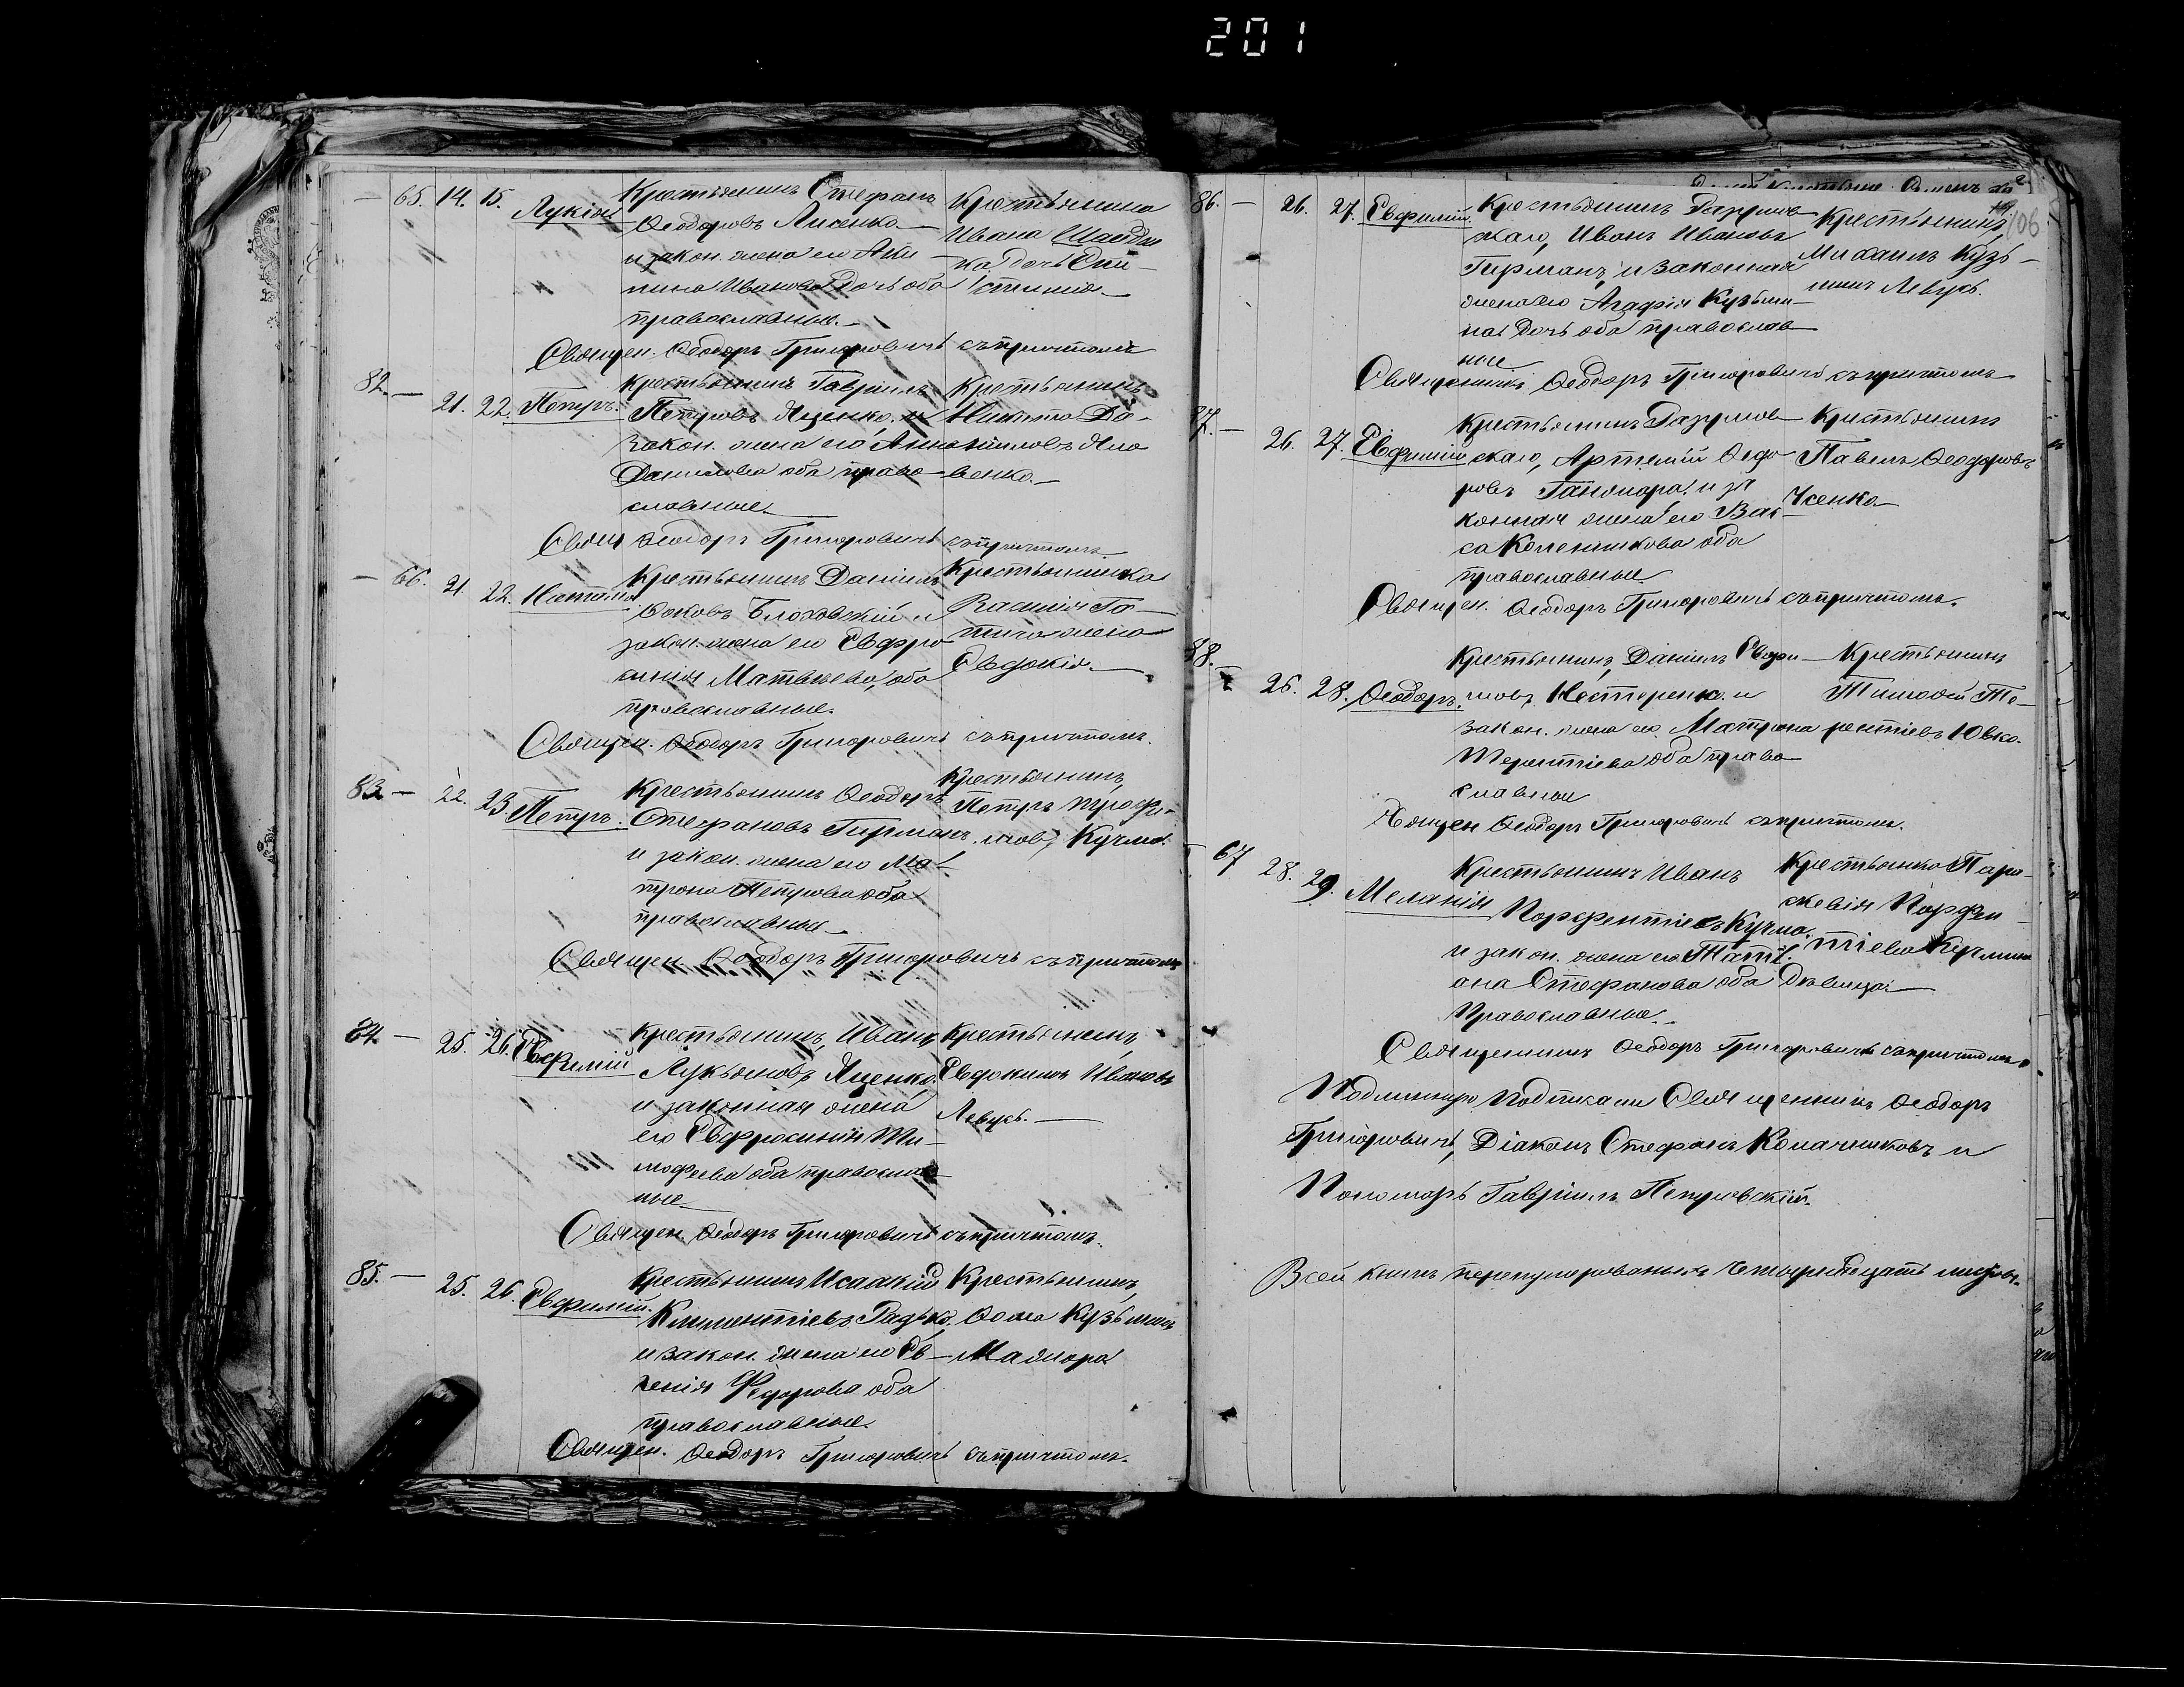 201
— 65. 14. 15. Лукія
Крестьянинъ Стефанъ
Ѳеодоровъ Лисенко
и закон. жена его Аки-
лина Иванова дочь оба
православные.
Крестьянина
Ивана
дочь
Священ. Ѳеодоръ Григоровичъ съ причтомъ
82. — 21. 22. Петръ.
Крестьянинъ Гавріилъ
Петровъ Яценко, и
закон. жена его Анна
Данилова оба право-
славные.
Крестьянинъ
Никита Да-
ниловъ Яко-
венко.
Священ Ѳеодоръ Григоровичъ съ причтомъ.
— 66. 21. 22. Наталія
Крестьянинъ Даніилъ
Яковъ и
закон. жена его Евфро-
синія Матвеева, оба
православные.
Крестьянина
жена
Евдокія.
Священ. Ѳеодоръ Григоровичъ съ причтомъ.
83 — 22. 23 Петръ.
Крестьянинъ Ѳеодоръ
Стефановъ Гирманъ
и закон. жена его Ма-
трона Петрова оба
православные
Крестьянинъ,
Петръ Трофи-
мовъ, Кучма.
Священ. Ѳеодоръ Григоровичъ съ причтомъ
84 — 25. 26. Евфимій
Крестьянинъ, Иванъ
Лукьяновъ, Яценко.
и законная жена
его Евфросинія Ти-
мофеева оба православ-
ные
Крестьянинъ,
Евдокимъ Ивановъ
Левусь.
Священ. Ѳеодоръ Григоровичъ съ причтомъ.
85. — 25. 26. Евфимій.
Крестьянинъ Исаакій
Климентіевъ Радько.
и закон. жена его Ев-
генія Федорова оба
православные.
Крестьянинъ,
Ѳома Кузьминъ
Священ. Ѳеодоръ Григоровичъ съ причтомъ.
106
86. — 26. 27. Евфимій.
Крестьянинъ Разумов-
скаго, Иванъ Ивановъ
Гирманъ, и законная
жена его Агафія Кузьми-
на дочь оба православ-
ные
Крестьянинъ,
Михаилъ Кузь-
минъ Левусь.
Священникъ Ѳеодоръ Григоровичъ съ причтомъ
87. — 26. 27. Евфимій
Крестьянинъ Разумов-
скаго, Артемій Ѳедо-
ровъ и за-
конная жена его Вас-
са Колесникова оба
православные
Крестьянинъ
Павелъ Ѳеодоровъ
Усенко
Священ. Ѳеодоръ Григоровичъ съ причтомъ.
88. — 26. 28. Ѳеодоръ.
Крестьянинъ, Даніилъ Евфи-
мовъ, Нестеренко. и
закон. жена его Матрона
Терентіева оба право-
славные
Крестьянинъ
Тимофей Те-
рентіевъ Ювко.
Священ Ѳеодоръ Григоровичъ съ причтомъ.
— 67 28. 29. Меланія
Крестьянинъ Иванъ
Порфентіевъ Кучма.
и закон. жена его Таті-
ана Стефанова оба
Православные.
Крестьянка Пара-
скевія Порфен-
тіева Кучмина
Девица
Священникъ Ѳеодоръ Григоровичъ съ причтомъ.
Подлинную подписали Священникъ Ѳеодоръ
Григоровичъ, Діаконъ Стефанъ Колачниковъ и
Пономарь Гавріилъ Петровскій.
Всей книги перенумерованныхъ четыредцать листовъ.